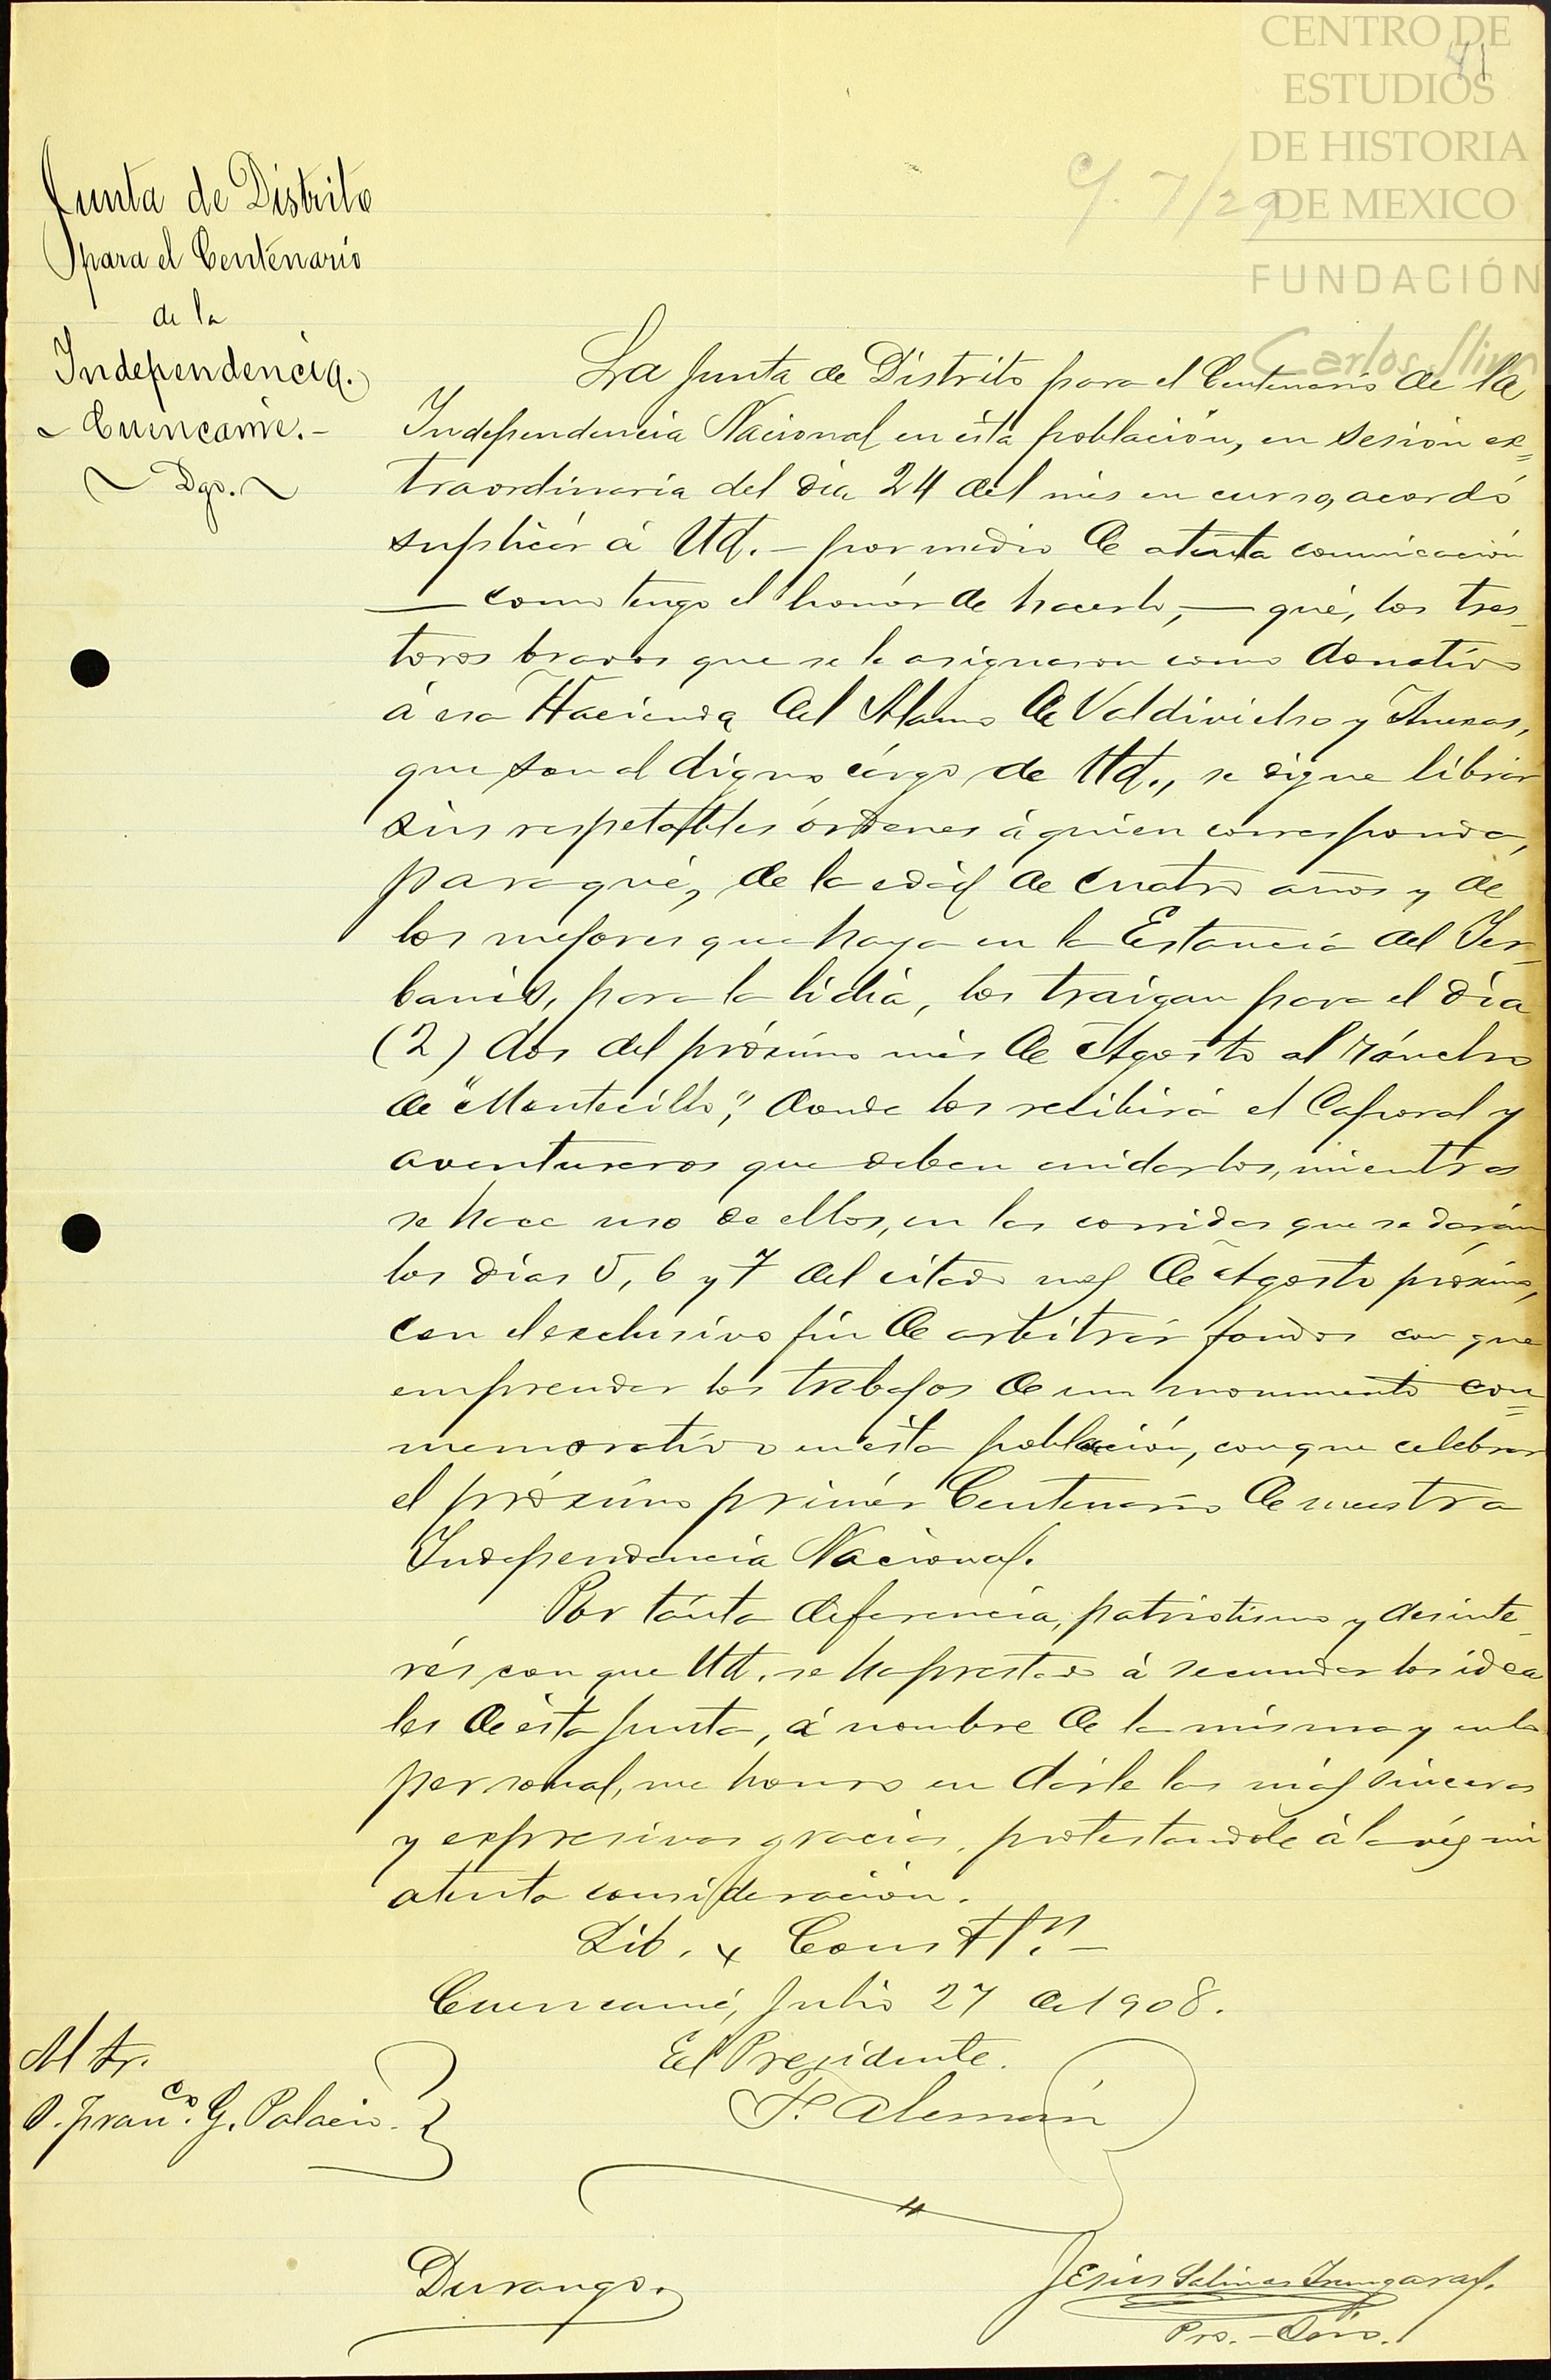 CENTRO DE
ESTUDIOS
DE HISTORIA
DE MEXICO
FUNDACIÓN
Carlos Slim
41
C/. 7/29
Junta de Distrito
para el Centenario
de la
Independencia.
Cuencamé.-
Dgo.
La Junta de Distrito para el Centenario de la
Independencia Nacional en ésta población, en sesión ex=
traordinaria del dia 24 del mes en curso, acordó
suplicár á Ud. - por medio de atenta comunicación
— como tengo el honór de hacerlo, — qué, los tres
toros bravos que se le asignaron como donativo
á esa Hacienda del Alamo de Valdivielso y Anexas,
que son al digno cárgo de Ud., se digne librár
sus respetables órdenes á quien corresponda,
para qué, de la edád de cuatro años y de
los mejores que haya en la Estancia del Ter-
banis, para la lidia, los traigan para el dia
(2) dos del próximo més de Agosto al ráncho
de "Montecillo," donde los recibirá el Caporal y
aventureros que deben cuidarlos, mientras
se hace uso de ellos, en las corridas que se darán
los dias 5, 6 y 7 del citado mes de Agosto próximo,
con el exclusivo fin de arbitrár fondos con que
emprender los trabajos de un monumento con=
memorativo en ésta población, con que celebrar
el próximo primér Centenario de nuestra
Independencia Nacional.
Por tánta deferencia, patriotismo y desinte-
rés con que Ud. se ha prestado á secundar los idea
les de ésta Junta, á nombre de la misma y en lo
personal, me honro en dárle las más sinceras
y expresivas gracias, protestandole á la véz mi
atenta consideración.
Lib. y Constn.-
Cuencamé, Julio 27 de 1908.
El Presidente.
F. Alemán
Al Sr.
D. Franco. G. Palacio.
Durango.
Jesús Salinas
Pro.-Srio.